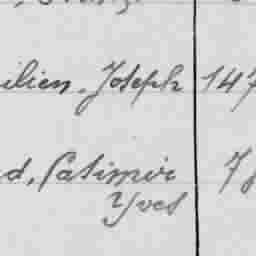 ilien, Joseph 147
d, Casimir 7
Yves